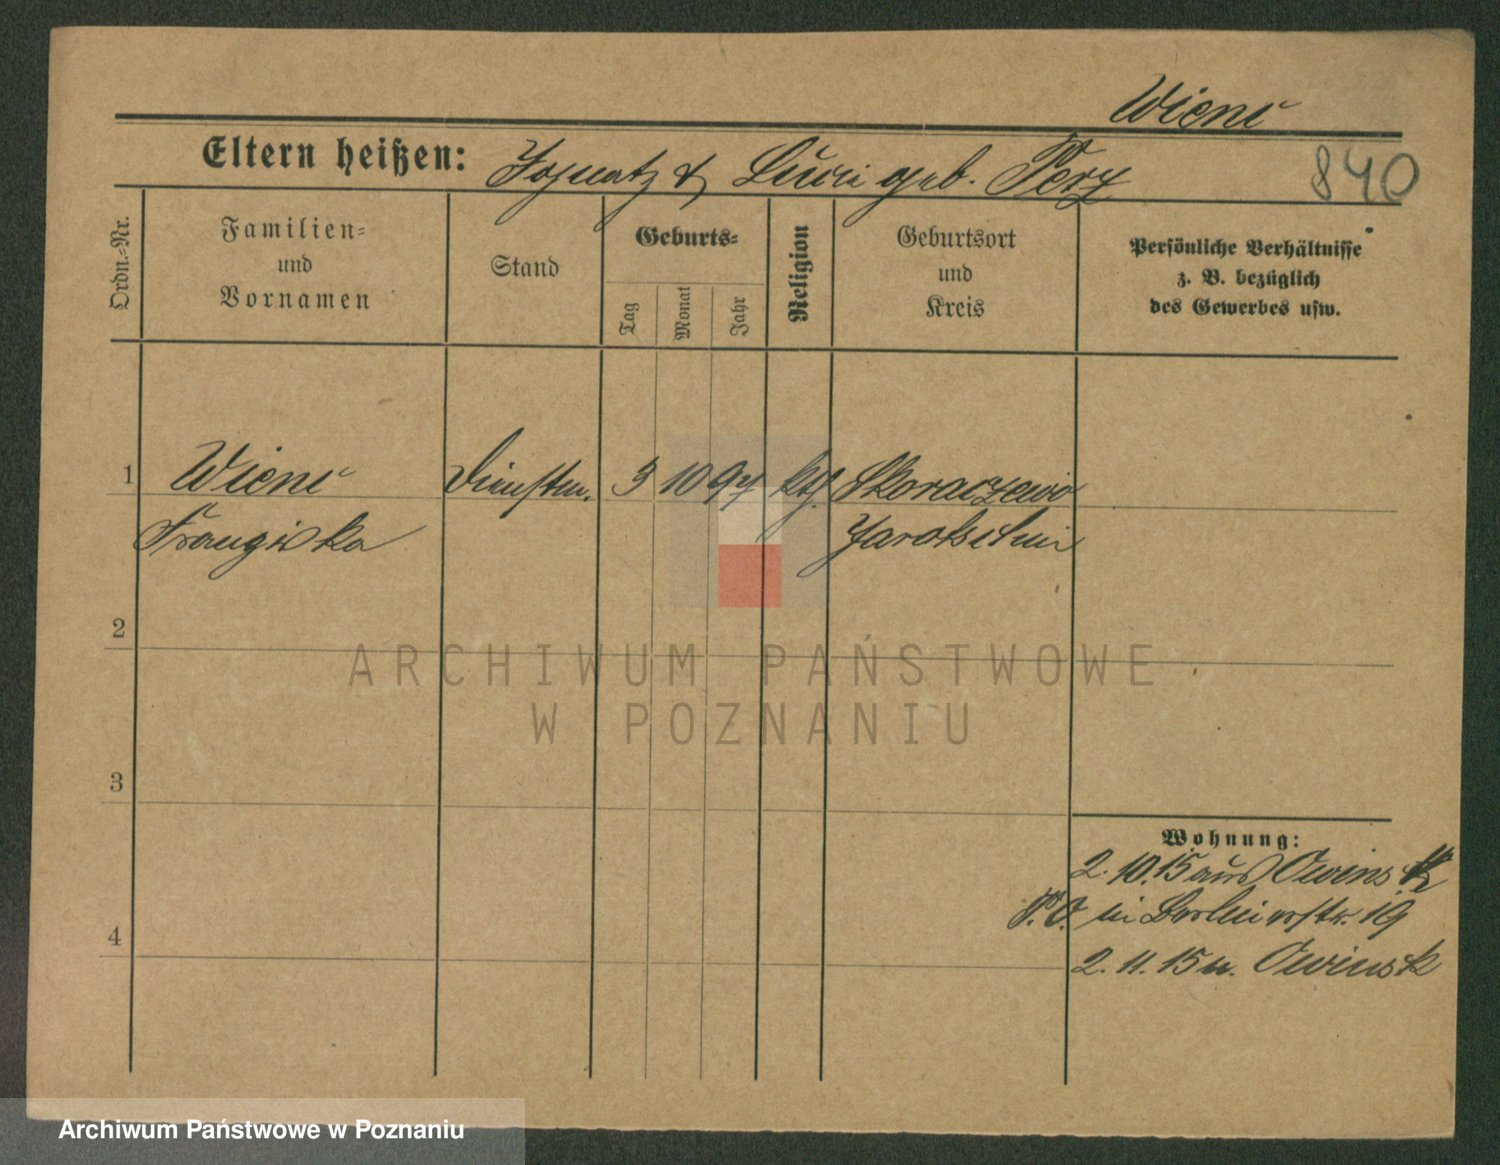 Wiene
Eltern heißen: Ignatz & geb. Perz
840
Ordn.=Nr.
Familien=
und
Vornamen
Stand
Geburts=
Tag
Monat
Jahr
Religion
Geburtsort
und
Kreis
Persönliche Verhältnisse
z. B. bezüglich
des Gewerbes usw.
1 Wiene Dienstm. 3 10 97 kth. Skoraczewo
Franziska Jarotschin
2
3
4
Wohnung:
2. 10. 15 aus Owinsk
P. O. in Berlinerstr. 19
2. 11. 15 n. Owinsk
ARCHIWUM PAŃSTWOWE
W POZNANIU
Archiwum Państwowe w Poznaniu